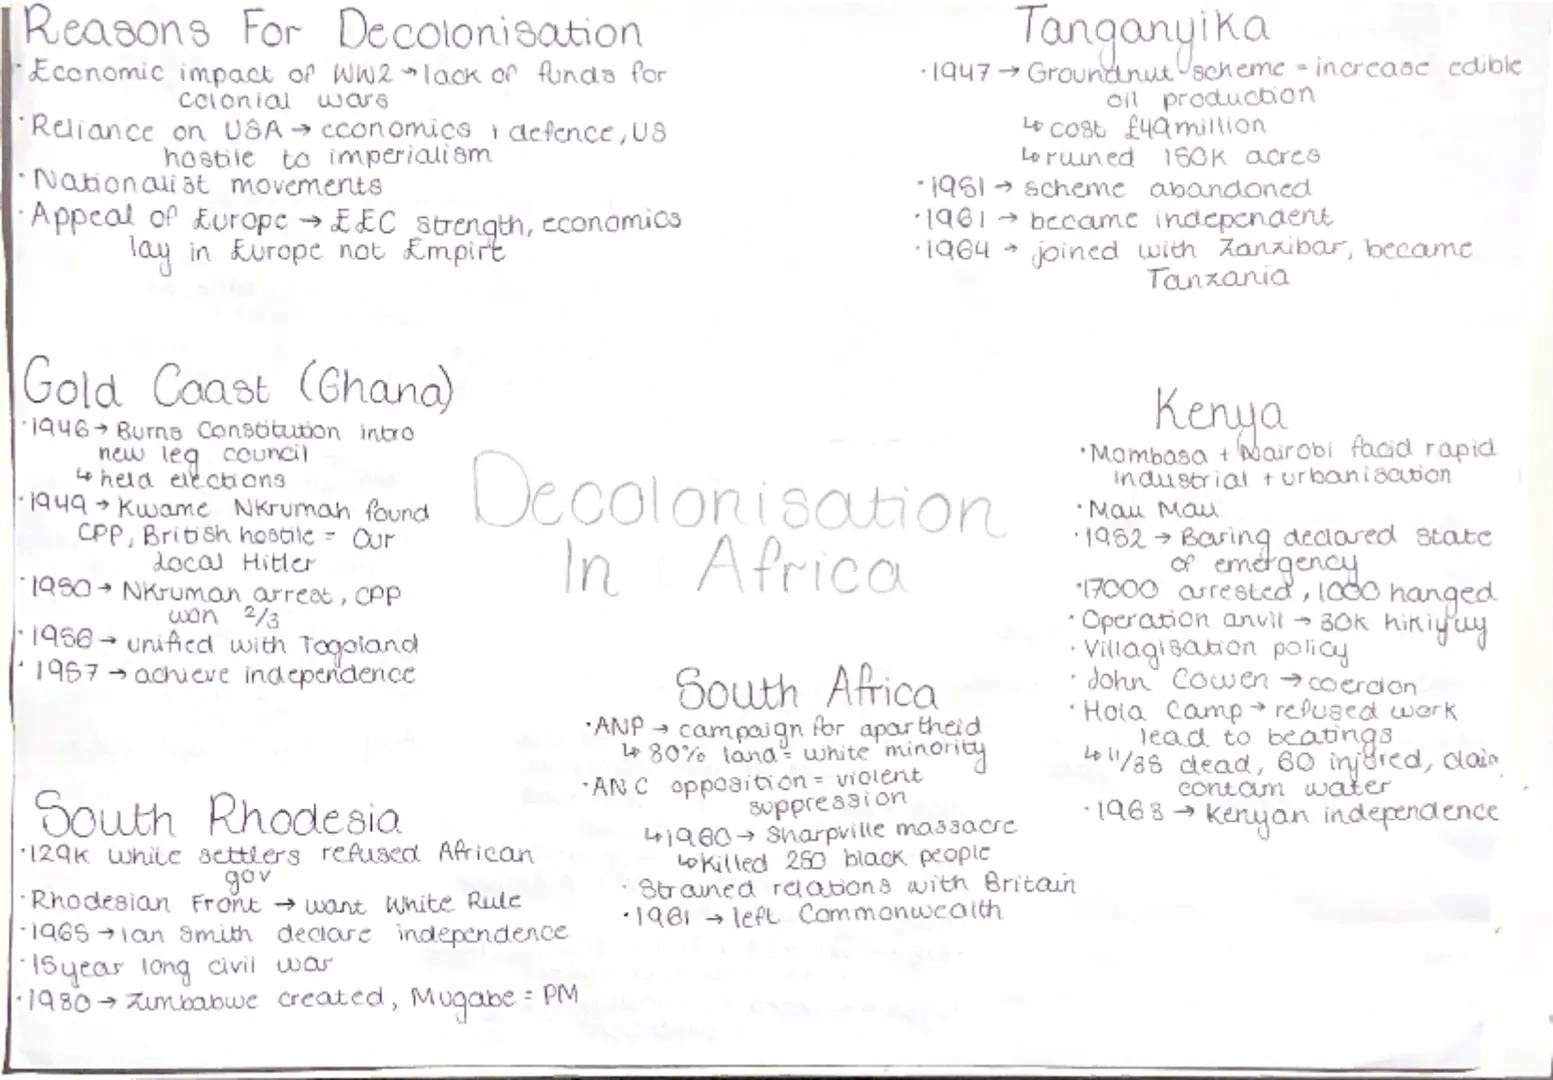 Reasons For Decolonisation
·Economic impact of WW2 → lack of funds for
colonial wars
·Reliance on USA → economics, defence, US
hostile to imperialism
·Nationalist movements
·Appeal of Europe → EEC strength, economics
lay in Europe not Empire
Tanganyika
·1947 → Groundnut scheme = increase edible
oil production
↳ cost £49million
↳ ruined 150k acres
·1951 → scheme abandoned
·1961 → became independent
·1964 → joined with Zanzibar, became
Tanzania
Gold Coast (Ghana)
·1946 → Burns Constitution intro
new leg council
↳ held elections
·1949 → Kwame Nkrumah found
CPP, British hostile = Our
Local Hitler
·1950 → Nkrumah arrest, CPP
won 2/3
·1956 → unified with Togoland
·1957 → achieve independence
Decolonisation
In Africa
Kenya
·Mombasa + Nairobi faced rapid
industrial + urbanisation
·Mau Mau
·1952 → Baring declared state
of emergency
·17000 arrested, 1000 hanged
·Operation anvil → 30k kikiyuy
·Villagisation policy
·John Cowen → coercion
·Hola Camp → refused work
lead to beatings
↳ 11/85 dead, 60 injured, claim
contam water
·1963 → Kenyan independence
South Africa
·ANP → campaign for apartheid
↳ 80% land = white minority
·ANC opposition = violent
suppression
↳ 1960 → Sharpville massacre
↳ Killed 250 black people
·Strained relations with Britain
·1961 → left Commonwealth
South Rhodesia
·129k white settlers refused African
gov
·Rhodesian Front → want White Rule
·1965 → Ian Smith declare independence
·15 year long civil war
·1980 → Zimbabwe created, Mugabe = PM